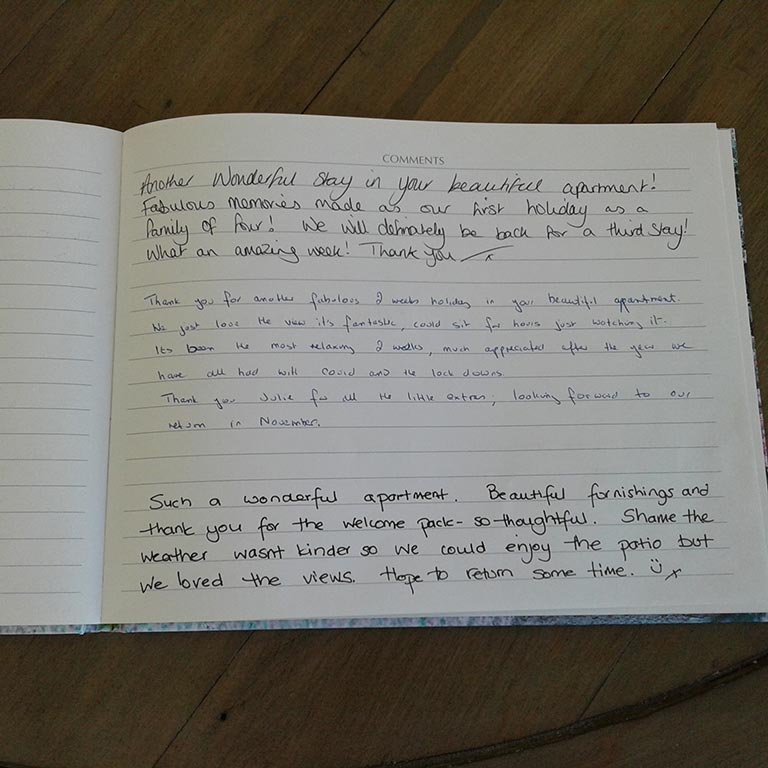 COMMENTS
Another Wonderful stay in your beautiful apartment!
Fabulous memories made as our first holiday as a
family of four! We will definately be back for a third stay!
What an amazing week! Thank you x
Thank you for another fabulous 2 weeks holiday in your beautiful apartment.
We just love the view it's fantastic, could sit for hours just watching it.
Its been the most relaxing 2 weeks, much appreciated after the year we
have all had with Covid and the lock downs.
Thank you Julie for all the little extras; looking forward to our
return in November.
Such a wonderful apartment. Beautiful fornishings and
thank you for the welcome pack - so thoughtful. Shame the
weather wasnt kinder so we could enjoy the patio but
we loved the views. Hope to return some time. x